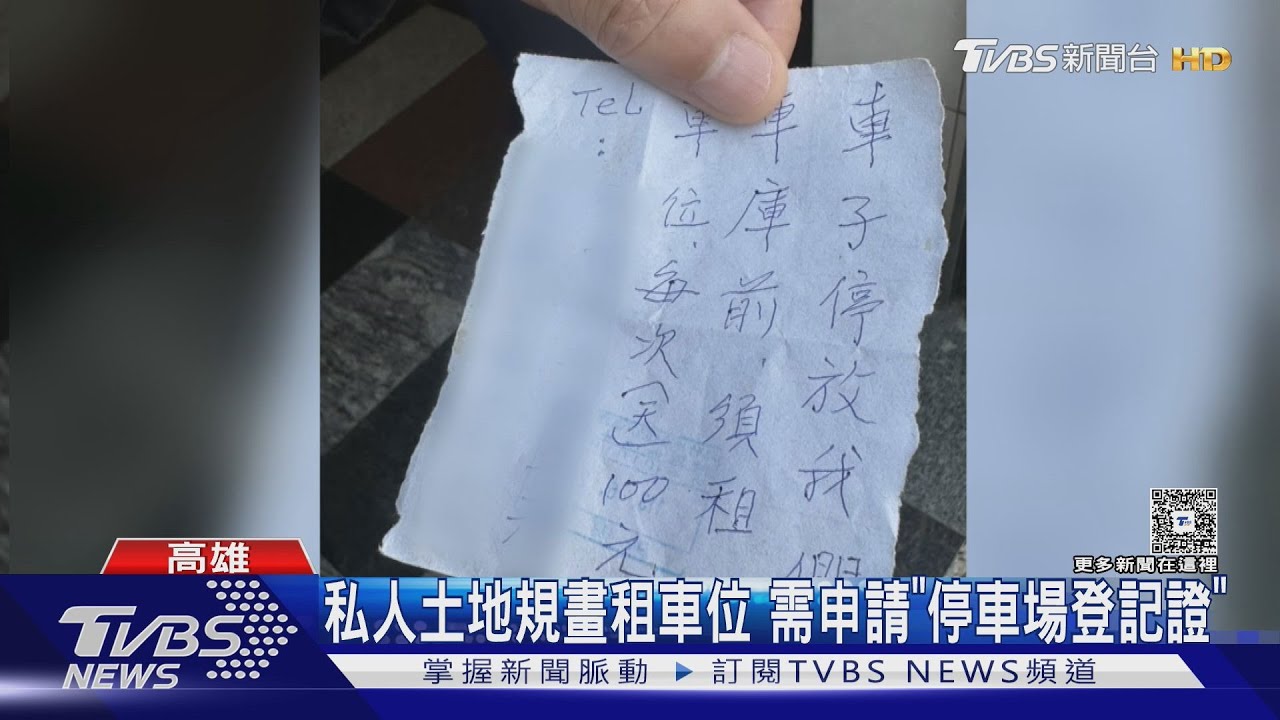 TVBS新聞台 HD
車子停放我
車庫前,須租
車位,每次送100元
Tel:
更多新聞在這裡
高雄
私人土地規畫租車位 需申請"停車場登記證"
TVBS NEWS
掌握新聞脈動 ▶ 訂閱TVBS NEWS頻道